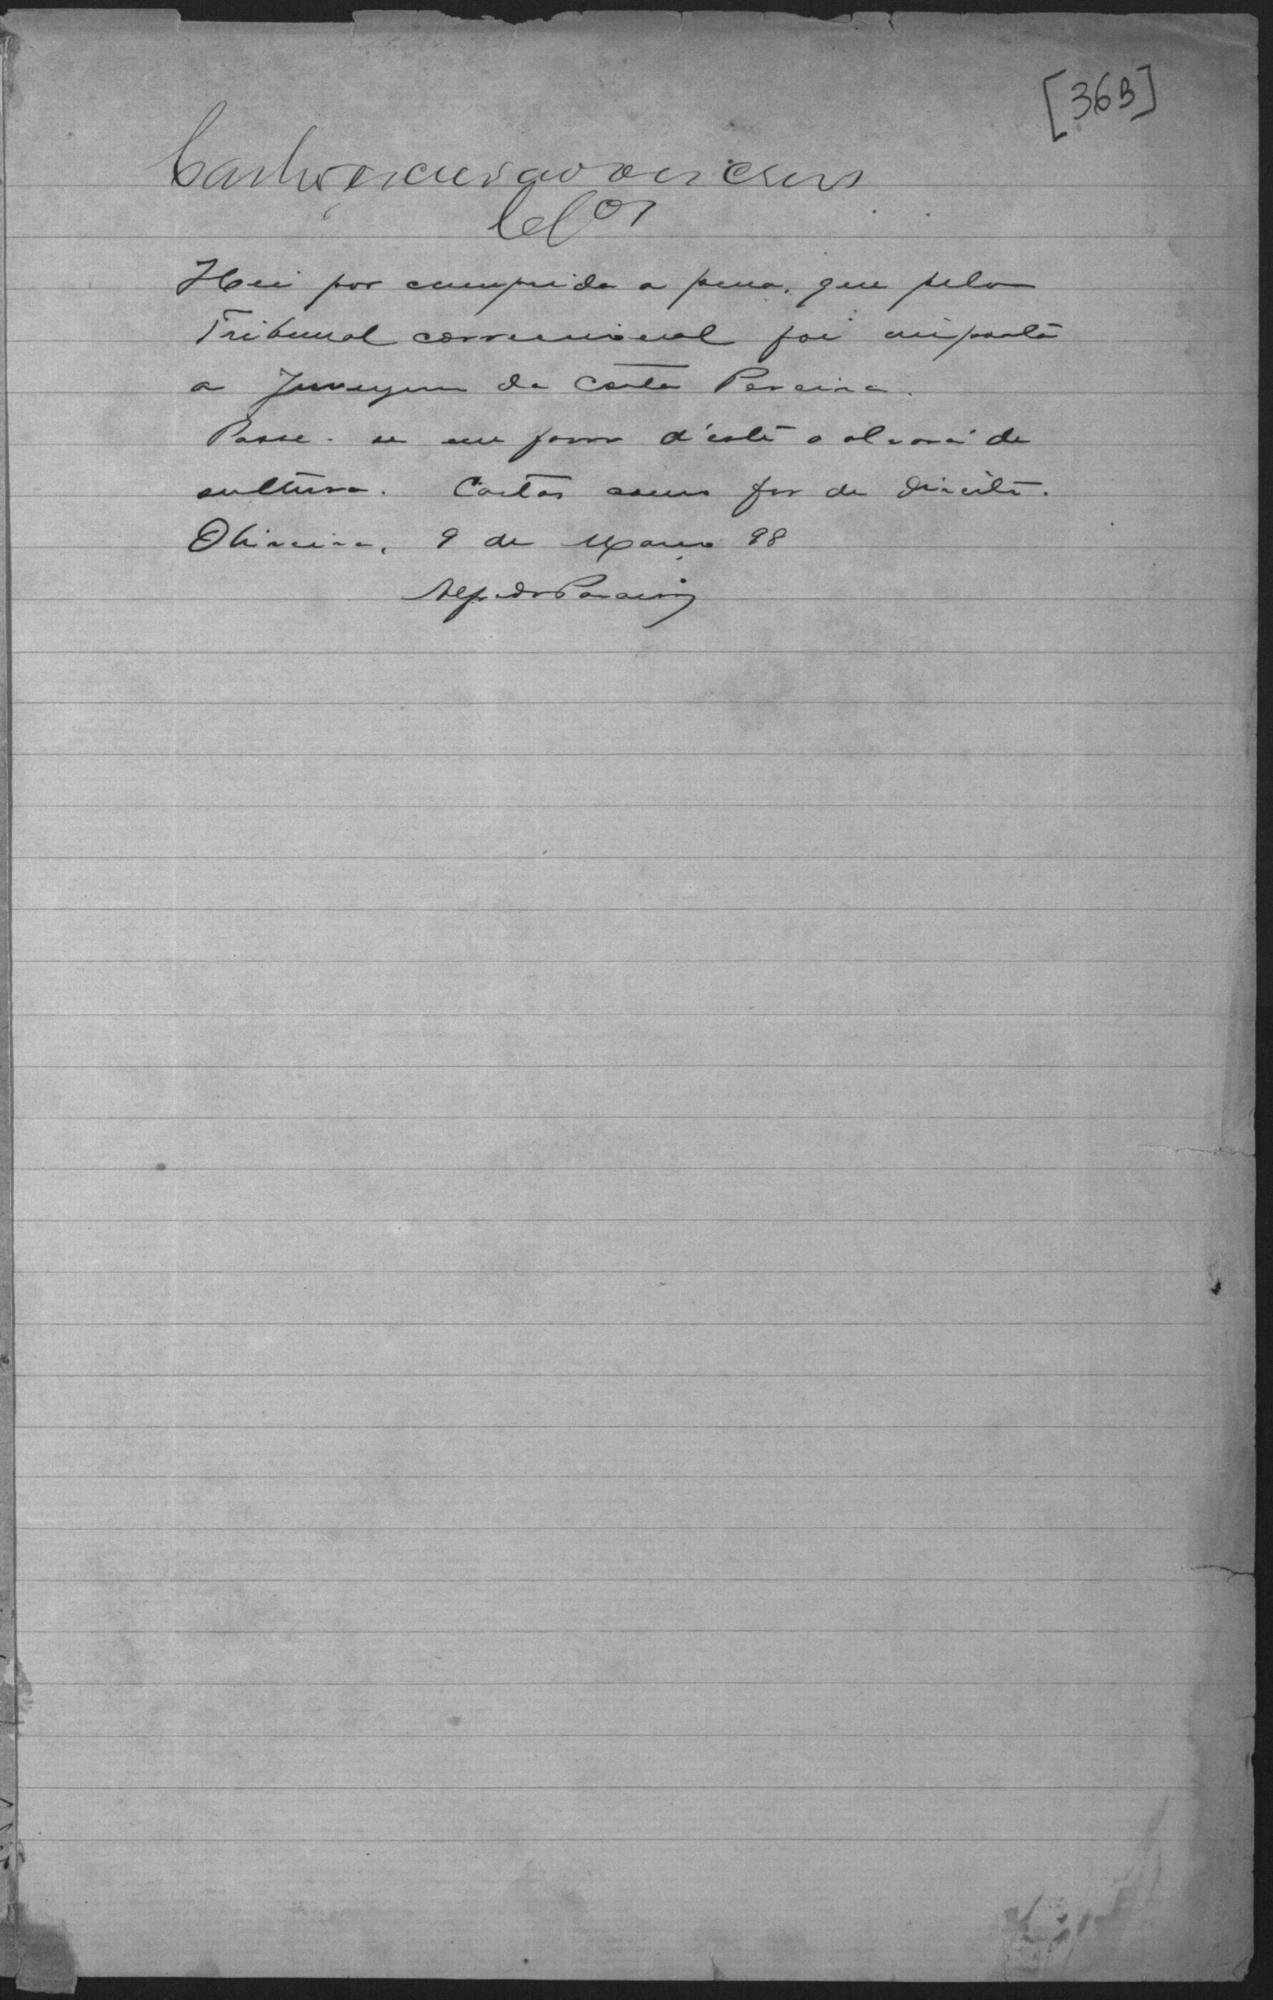 [36B]
Hei por cumprida a pena, que pelo
Tribunal correccional foi imposta
a da Costa Pereira.
Passe-se em favor d'este o alvará de
soltura. Custas como for de direito.
Oliveira, 9 de Março 98